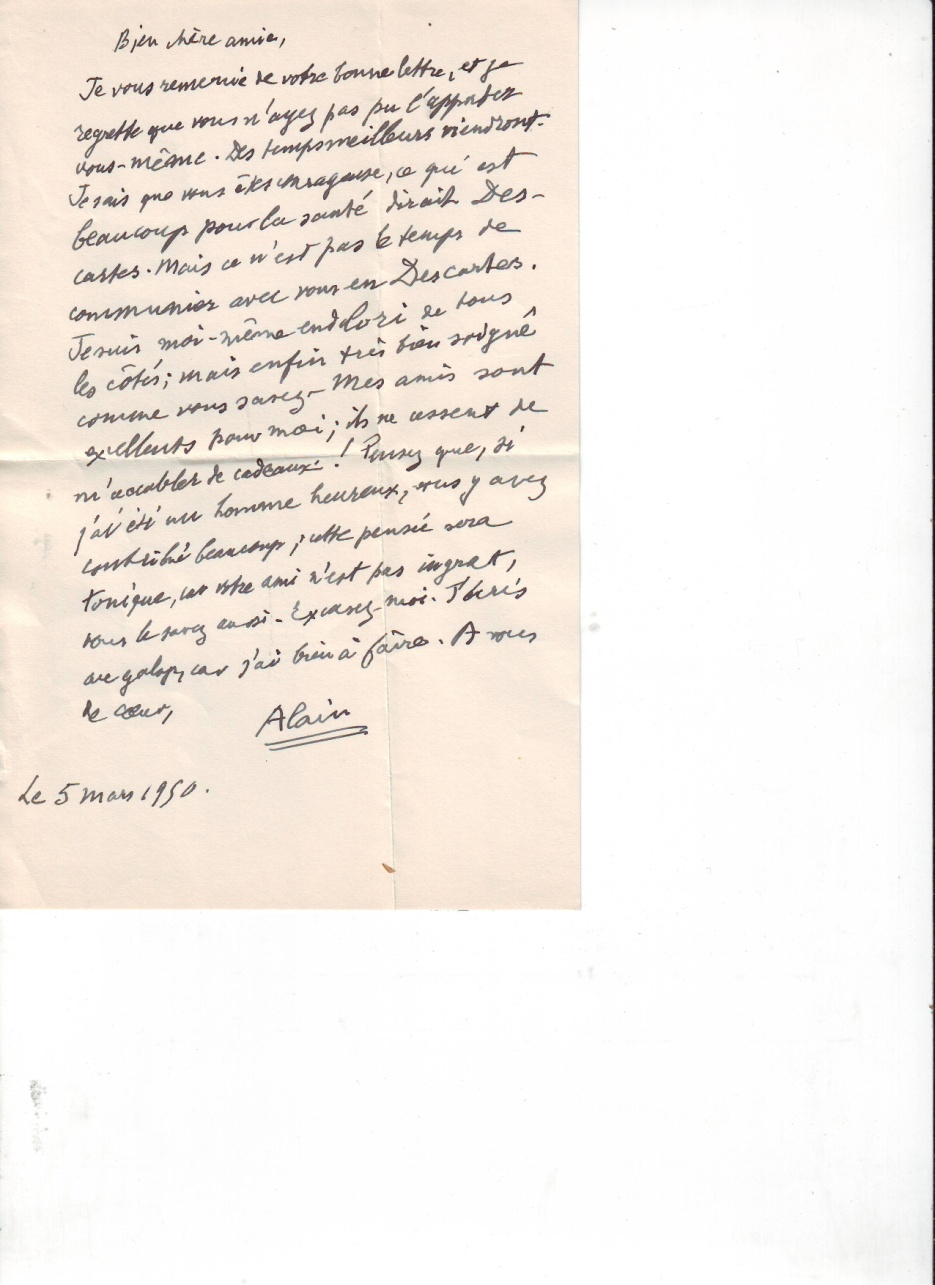 Bien chère amie,
Je vous remercie de votre bonne lettre, et je
regrette que vous n'ayez pas pu l'apporter
vous-même. Des temps meilleurs viendront.
Je sais que vous êtes courageuse, ce qui est
beaucoup pour la santé dirait Des-
cartes. Mais ce n'est pas le temps de
communier avec vous en Descartes.
Je suis moi-même endolori de tous
les côtés ; mais enfin très bien soigné
comme vous savez - Mes amis sont
excellents pour moi ; ils ne cessent de
m'accabler de cadeaux ! Pensez que, si
j'ai été un homme heureux, vous y avez
contribué beaucoup ; cette pensée sera
tonique, car votre ami n'est pas ingrat,
vous le savez aussi - Excusez-moi. J'écris
au galop, car j'ai bien à faire. A vous
de cœur,
Alain
Le 5 mars 1950.